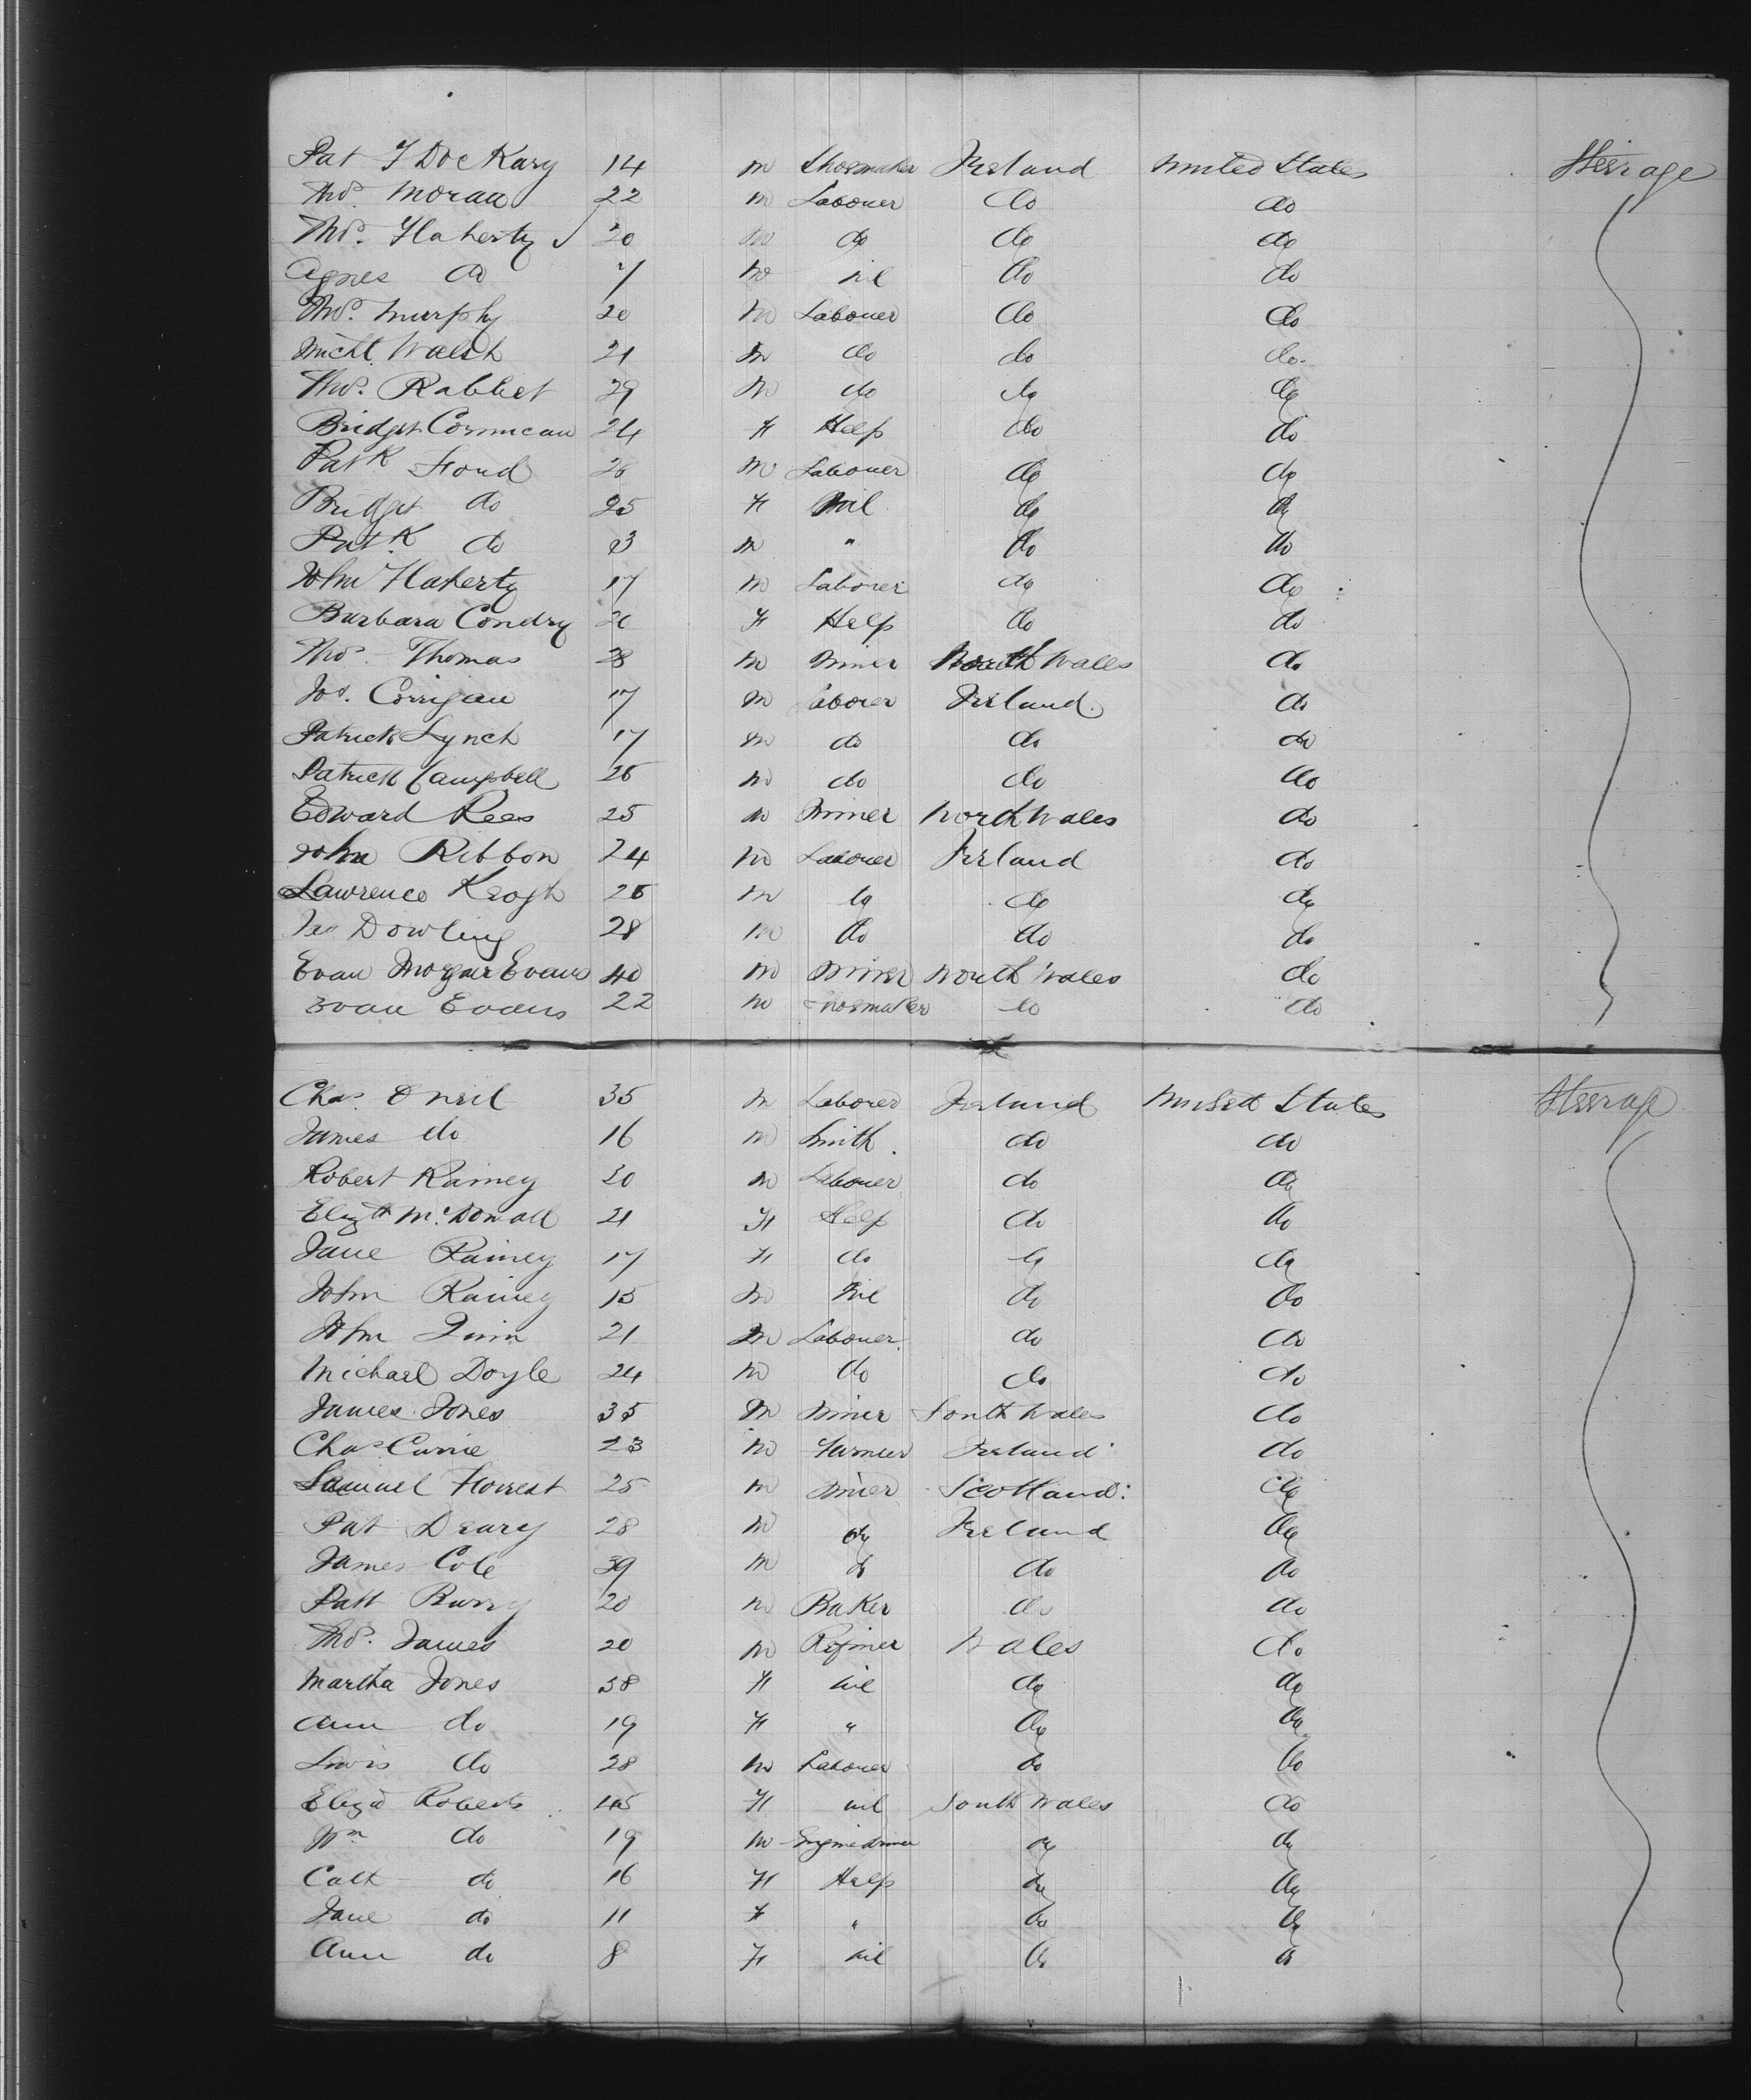 Pat J Dockary 14 m Shoemaker Ireland United States Steerage
Thos. Moran 22 m Laborer do do
Thos. Flaherty 20 m do do do
Agnes do 7 m nil do do
Thos. Murphy 20 m Laborer do do
Michl. Walsh 21 m do do do
Thos. Rabbiet 29 m do do do
Bridget Cormican 24 F Help do do
Patk Foud 26 m Laborer do do
Bridget do 25 F Nil do do
Patk. do 3 m " do do
John Flaherty 17 m Laborer do do
Barbara Condry 20 F Help do do
Thos. Thomas 28 m Miner North Wales do
Jos. Corrigan 17 m Laborer Ireland do
Patrick Lynch 17 m do do do
Patrick Campbell 25 m do do do
Edward Rees 25 m Miner North Wales do
John Ribbon 24 m Laborer Ireland do
Lawrence Keogh 25 m do do do
Jas Dowling 28 m do do do
Evan Morgan Evans 40 m Miner North Wales do
Evan Evans 22 m Shoemaker do do
Chas. O'Neil 35 m Laborer Ireland United States Steerage
James do 16 m Smith do do
Robert Rainey 20 m Laborer do do
Elizth McDonald 21 F Help do do
Jane Rainey 17 F do do do
John Rainey 15 m Nil do do
John Quin 21 m Laborer do do
Michael Doyle 24 m do do do
James Jones 35 m Miner South Wales do
Chas Currie 23 m Farmer Ireland do
Samuel Forrest 25 m Miner Scotland do
Pat Deary 28 m do Ireland do
James Cole 39 m do do do
Patt Burry 20 m Baker do do
Thos. James 20 m Refiner Wales do
Martha Jones 38 F nil do do
Ann do 19 F " do do
Lewis do 28 m Laborer do do
Eliza Roberts 45 F nil South Wales do
Wm do 19 m Engine driver do do
Cath do 16 F Help do do
Jane do 11 F " do do
Ann do 8 F nil do do